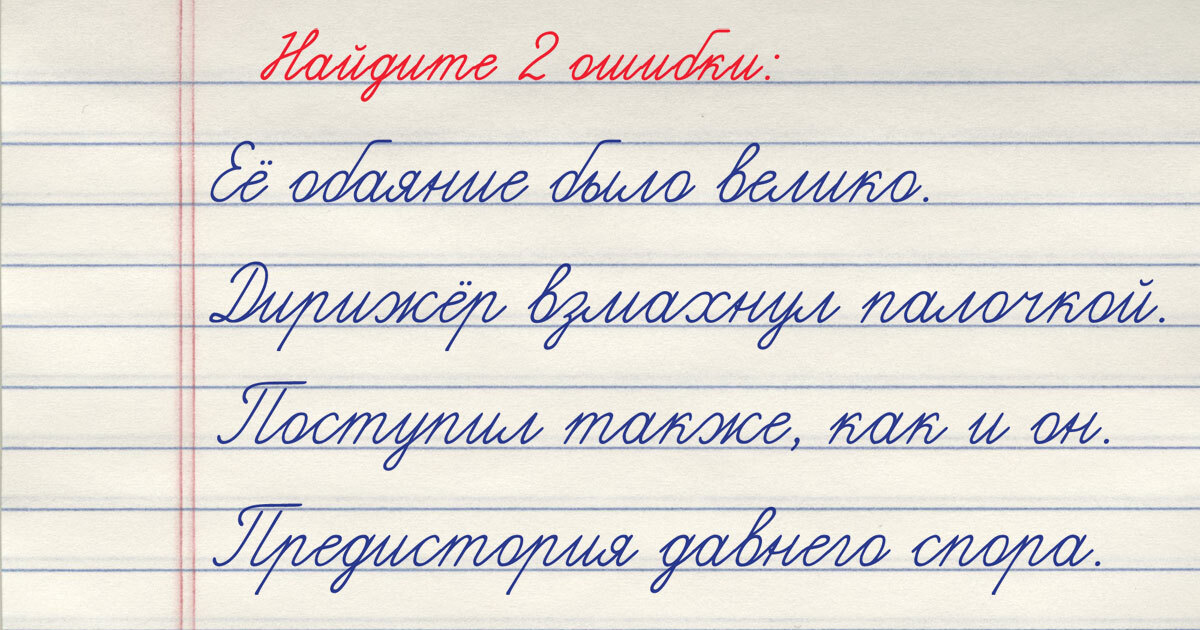 Найдите 2 ошибки:
Её обаяние было велико.
Дирижёр взмахнул палочкой.
Поступил также, как и он.
Предистория давнего спора.